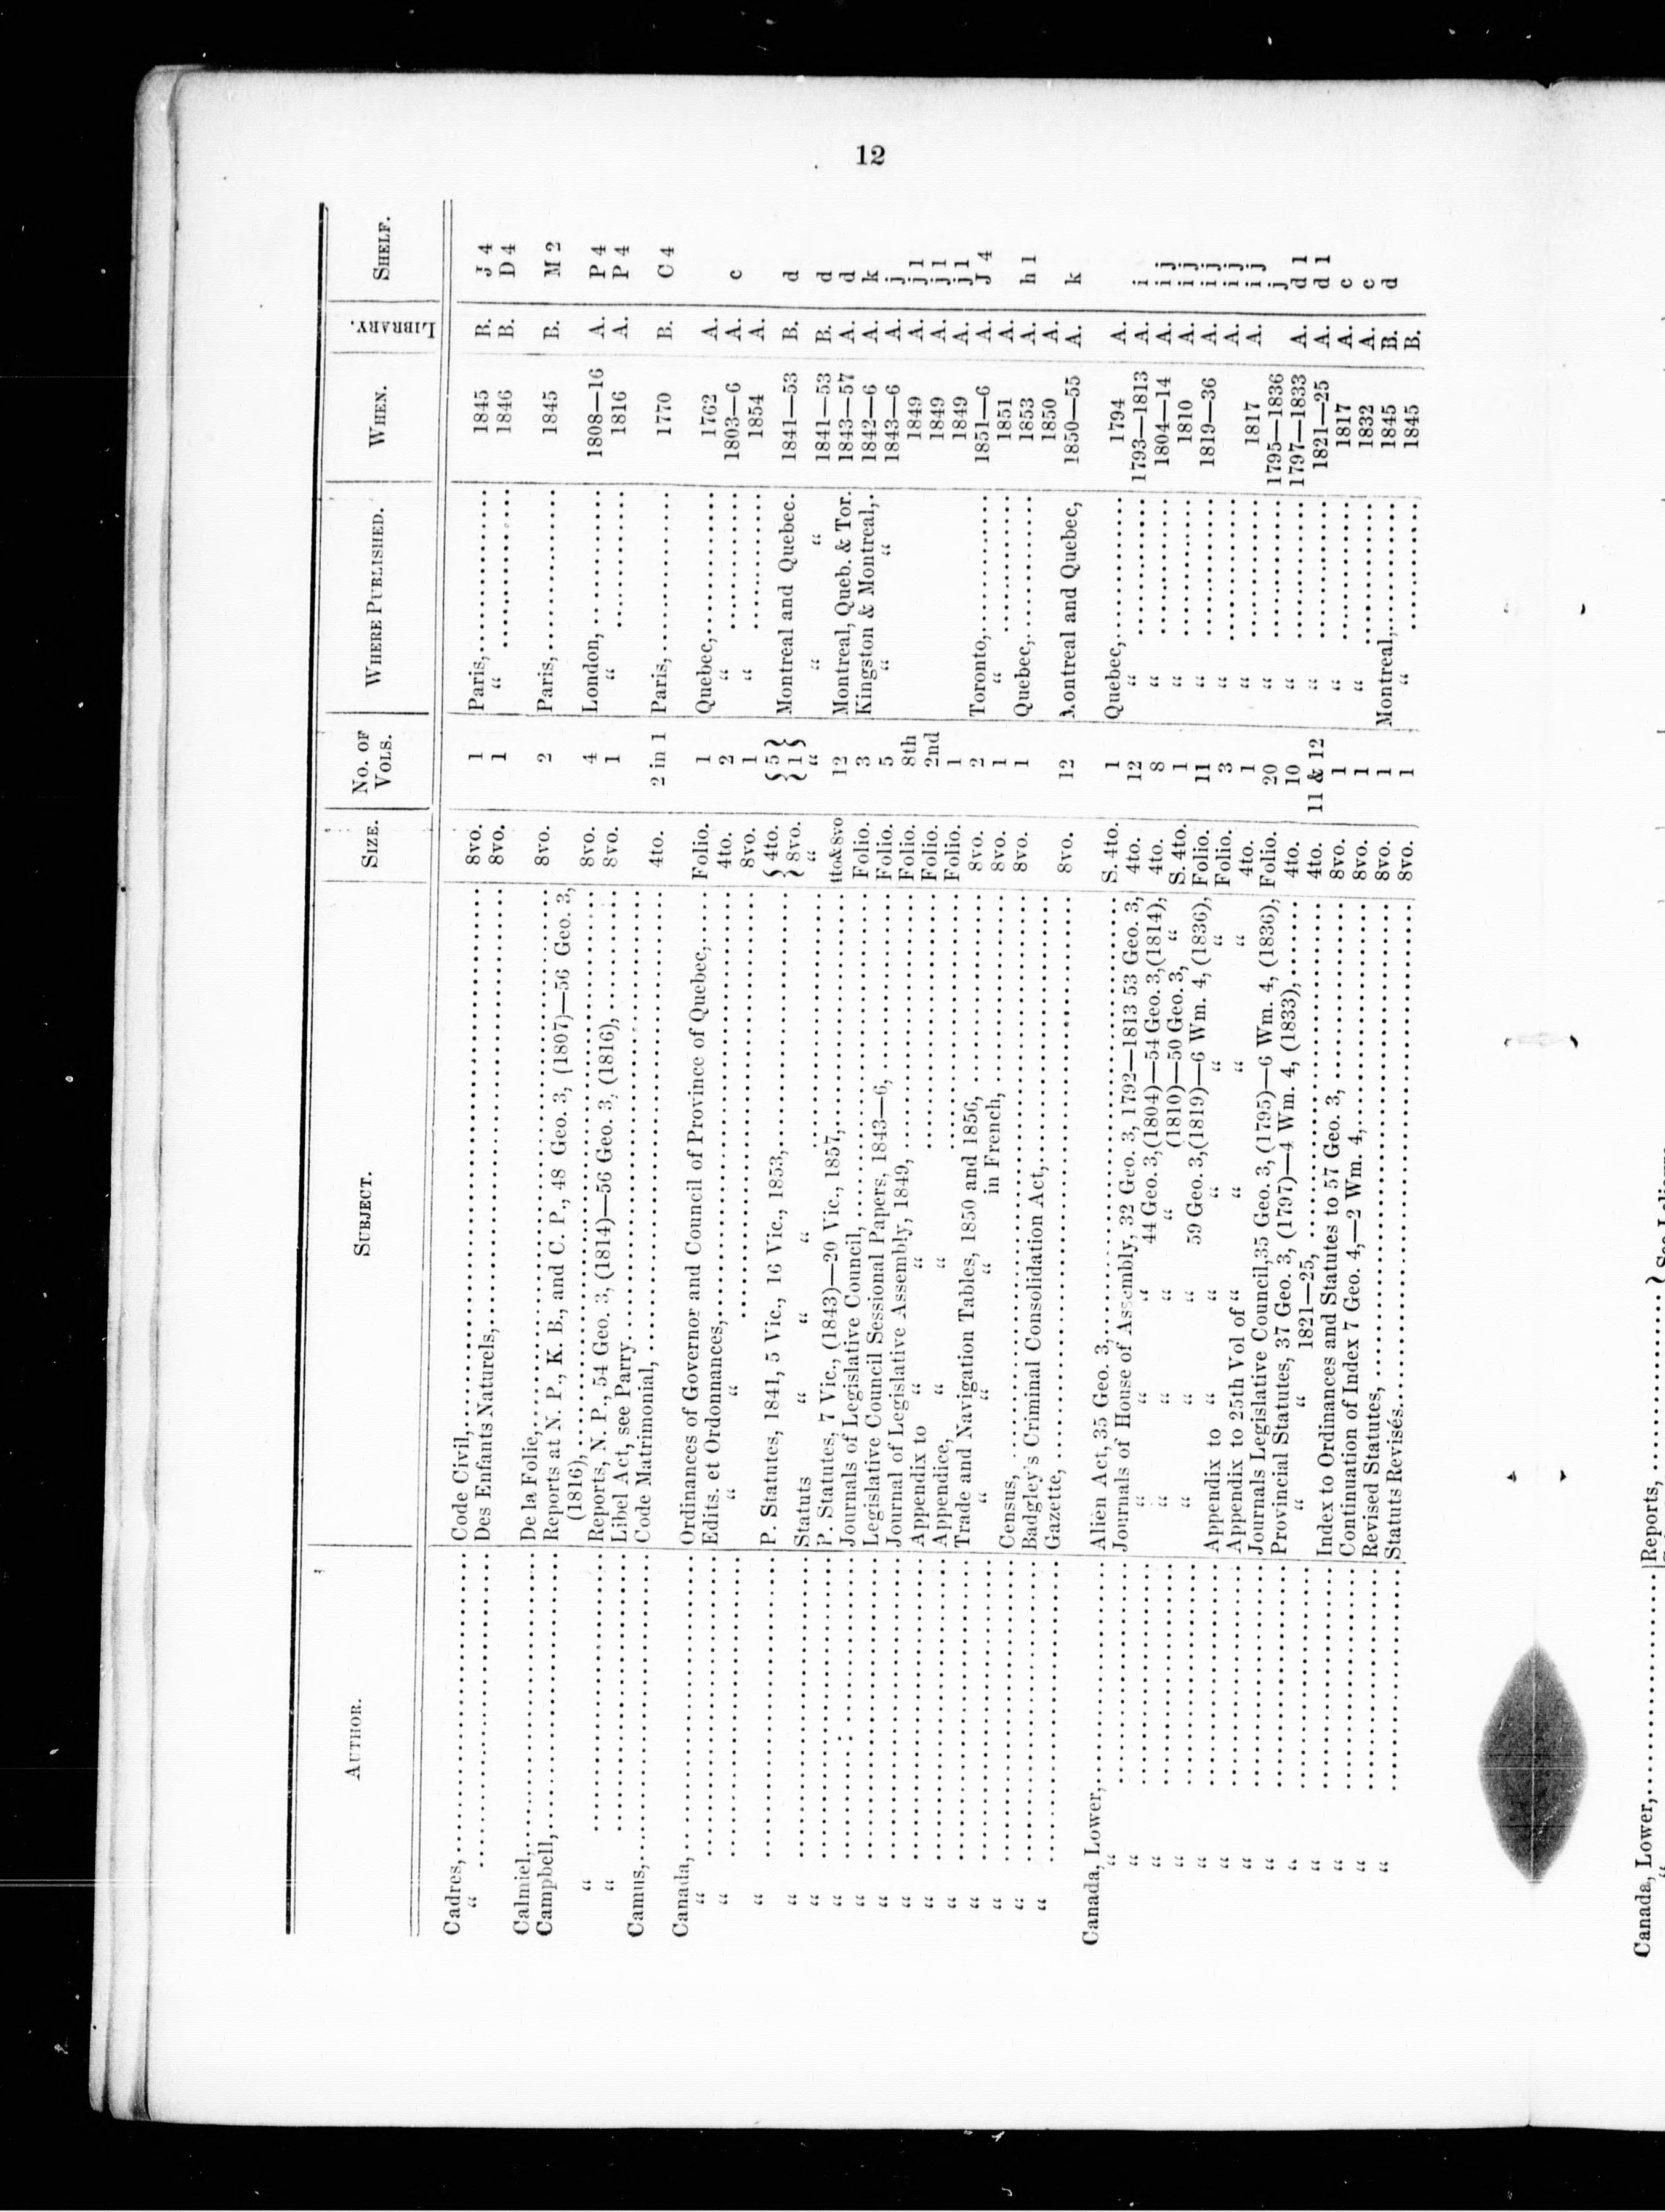 12
AUTHOR. SUBJECT. SIZE. No. OF VOLS. WHERE PUBLISHED. WHEN. LIBRARY. SHELF.
Cadres,.......... Code Civil,.......... 8vo. 1 Paris,.......... 1845 B. J 4
" .......... Des Enfants Naturels,.......... 8vo. 1 " .......... 1846 B. D 4
Calmiel,.......... De la Folie,.......... 8vo. 2 Paris,.......... 1845 B. M 2
Campbell,.......... Reports at N. P., K. B., and C. P., 48 Geo. 3, (1807)—56 Geo. 3,
(1816),.......... 8vo. 4 London,.......... 1808—16 A. P 4
" .......... Reports, N. P., 54 Geo. 3, (1814)—56 Geo. 3, (1816),.......... 8vo. 1 " .......... 1816 A. P 4
" .......... Libel Act, see Parry..........
Camus,.......... Code Matrimonial,.......... 4to. 2 in 1 Paris,.......... 1770 B. C 4
Canada,.......... Ordinances of Governor and Council of Province of Quebec,..... Folio. 1 Quebec,.......... 1762 A.
" .......... Edits. et Ordonnances,.......... 4to. 2 " .......... 1803—6 A. c
" .......... " " .......... 8vo. 1 " .......... 1854 A.
" .......... P. Statutes, 1841, 5 Vic., 16 Vic., 1853,.......... { 4to. 8vo. { 5 1 } Montreal and Quebec. 1841—53 B. d
" .......... Statuts " " " .......... " " " " 1841—53 B. d
" .......... P. Statutes, 7 Vic., (1843)—20 Vic., 1857,.......... 4to&8vo 12 Montreal, Queb. & Tor. 1843—57 A. d
" .......... Journals of Legislative Council,.......... Folio. 3 Kingston & Montreal,.. 1842—6 A. k
" .......... Legislative Council Sessional Papers, 1843—6, .......... Folio. 5 " " 1843—6 A. j
" .......... Journal of Legislative Assembly, 1849, .......... Folio. 8th 1849 A. j 1
" .......... Appendix to " " .......... Folio. 2nd 1849 A. j 1
" .......... Appendice, " " .......... Folio. 1 1849 A. j 1
" .......... Trade and Navigation Tables, 1850 and 1856, .......... 8vo. 2 Toronto,.......... 1851—6 A. J 4
" .......... " " " in French, .......... 8vo. 1 " .......... 1851 A.
" .......... Census, .......... 8vo. 1 Quebec,.......... 1853 A. h 1
" .......... Badgley's Criminal Consolidation Act,.......... 1850 A.
" .......... Gazette, .......... 8vo. 12 Montreal and Quebec, 1850—55 A. k
Canada, Lower,.......... Alien Act, 35 Geo. 3,.......... S. 4to. 1 Quebec,.......... 1794 A.
" .......... Journals of House of Assembly, 32 Geo. 3, 1792—1813 53 Geo. 3, 4to. 12 " .......... 1793—1813 A. i
" .......... " " " 44 Geo. 3,(1804)—54 Geo. 3,(1814), 4to. 8 " .......... 1804—14 A. i j
" .......... " " " " (1810)—50 Geo. 3, " S. 4to. 1 " .......... 1810 A. i j
" .......... " " " 59 Geo. 3,(1819)—6 Wm. 4, (1836), Folio. 11 " .......... 1819—36 A. i j
" .......... Appendix to " " " " " Folio. 3 " .......... A. i j
" .......... Appendix to 25th Vol of " " " " 4to. 1 " .......... 1817 A. i j
" .......... Journals Legislative Council,35 Geo. 3, (1795)—6 Wm. 4, (1836), Folio. 20 " .......... 1795—1836 j
" .......... Provincial Statutes, 37 Geo. 3, (1797)—4 Wm. 4, (1833),...... 4to. 10 " .......... 1797—1833 A. d 1
" .......... " " 1821—25, .......... 4to. 11 & 12 " .......... 1821—25 A. d 1
" .......... Index to Ordinances and Statutes to 57 Geo. 3, .......... 8vo. 1 " .......... 1817 A. c
" .......... Continuation of Index 7 Geo. 4,—2 Wm. 4,.......... 8vo. 1 " .......... 1832 A. c
" .......... Revised Statutes, .......... 8vo. 1 Montreal,.......... 1845 B. d
" .......... Statuts Revisés.......... 8vo. 1 " .......... 1845 B.
Canada, Lower,.......... Reports, ..........